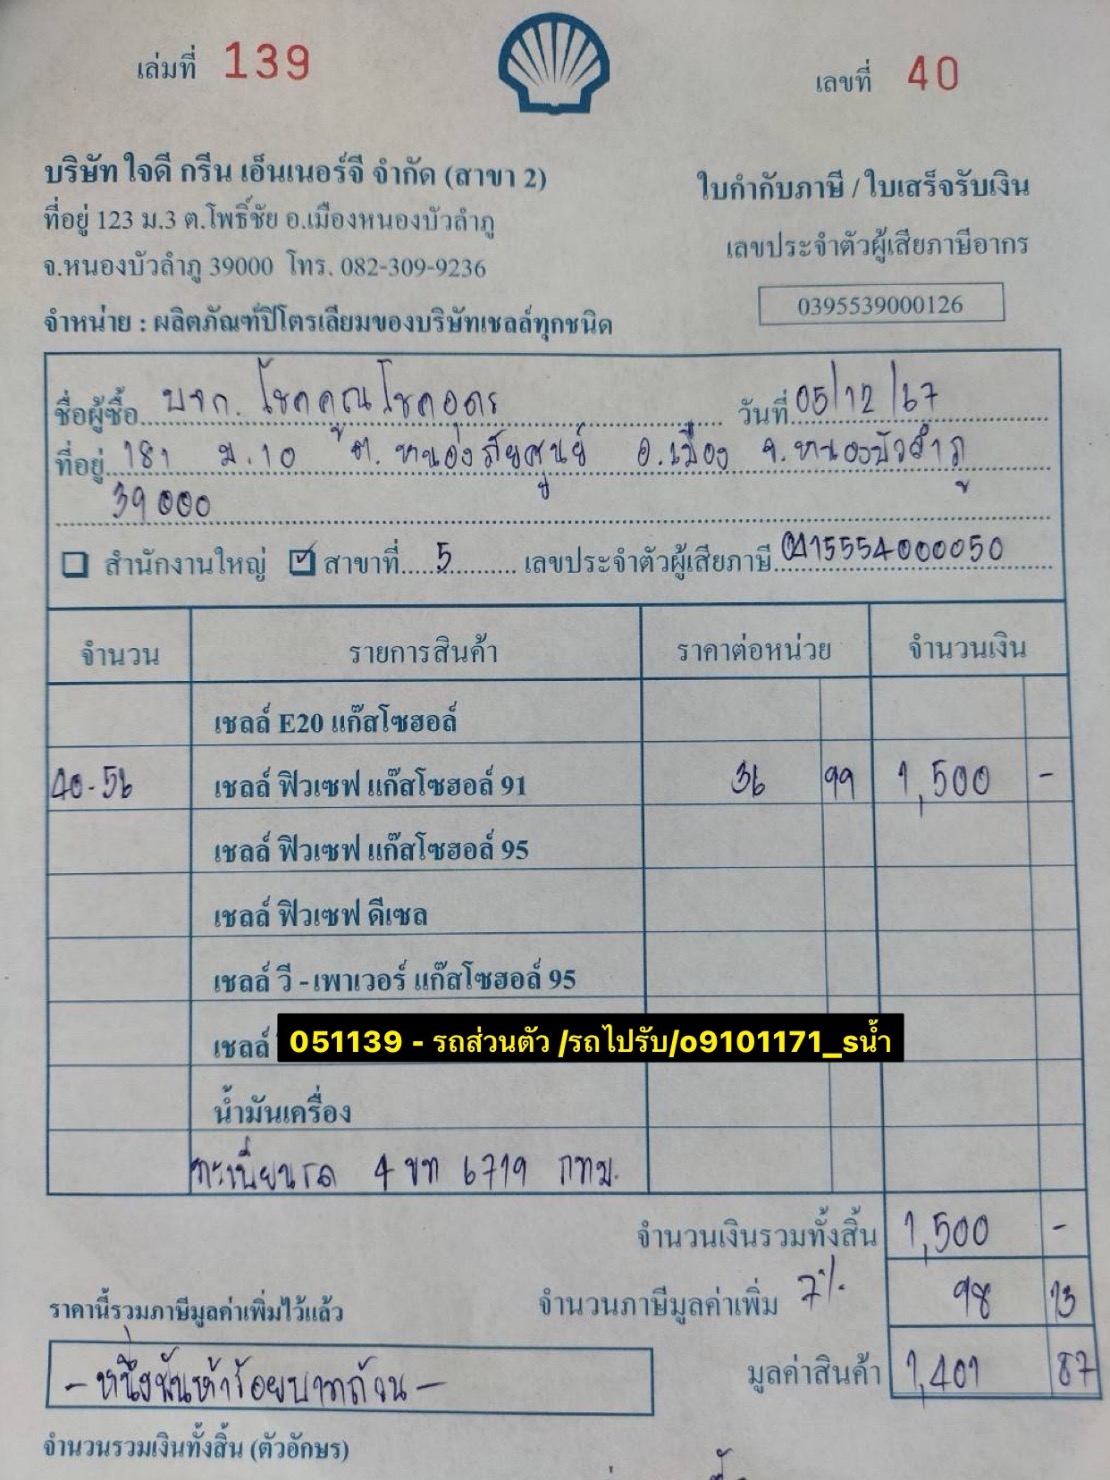 เล่มที่ 139
เลขที่ 40
บริษัท ใจดี กรีน เอ็นเนอร์จี จำกัด (สาขา 2)
ที่อยู่ 123 ม.3 ต.โพธิ์ชัย อ.เมืองหนองบัวลำภู
จ.หนองบัวลำภู 39000 โทร. 082-309-9236
จำหน่าย : ผลิตภัณฑ์ปิโตรเลียมของบริษัทเชลล์ทุกชนิด
ใบกำกับภาษี / ใบเสร็จรับเงิน
เลขประจำตัวผู้เสียภาษีอากร
0395539000126
ชื่อผู้ซื้อ บจก. โชคคูณโชคอุดร วันที่ 05/12/67
ที่อยู่ 181 ม.10 ต. หนองภัยศูนย์ อ.เมือง จ.หนองบัวลำภู
39000
สำนักงานใหญ่ สาขาที่ 5 เลขประจำตัวผู้เสียภาษี 0415554000050
จำนวน รายการสินค้า ราคาต่อหน่วย จำนวนเงิน
เชลล์ E20 แก๊สโซฮอล์
40-56 เชลล์ ฟิวเซฟ แก๊สโซฮอล์ 91 36 99 1,500 -
เชลล์ ฟิวเซฟ แก๊สโซฮอล์ 95
เชลล์ ฟิวเซฟ ดีเซล
เชลล์ วี - เพาเวอร์ แก๊สโซฮอล์ 95
เชลล์ 051139 - รถส่วนตัว /รถไปรับ/o9101171_sน้ำ
น้ำมันเครื่อง
ทะเบียนรถ 4 ขท 6719 กทม.
จำนวนเงินรวมทั้งสิ้น 1,500 -
ราคานี้รวมภาษีมูลค่าเพิ่มไว้แล้ว จำนวนภาษีมูลค่าเพิ่ม 7% 98 13
มูลค่าสินค้า 1,401 87
- หนึ่งพันห้าร้อยบาทถ้วน -
จำนวนรวมเงินทั้งสิ้น (ตัวอักษร)